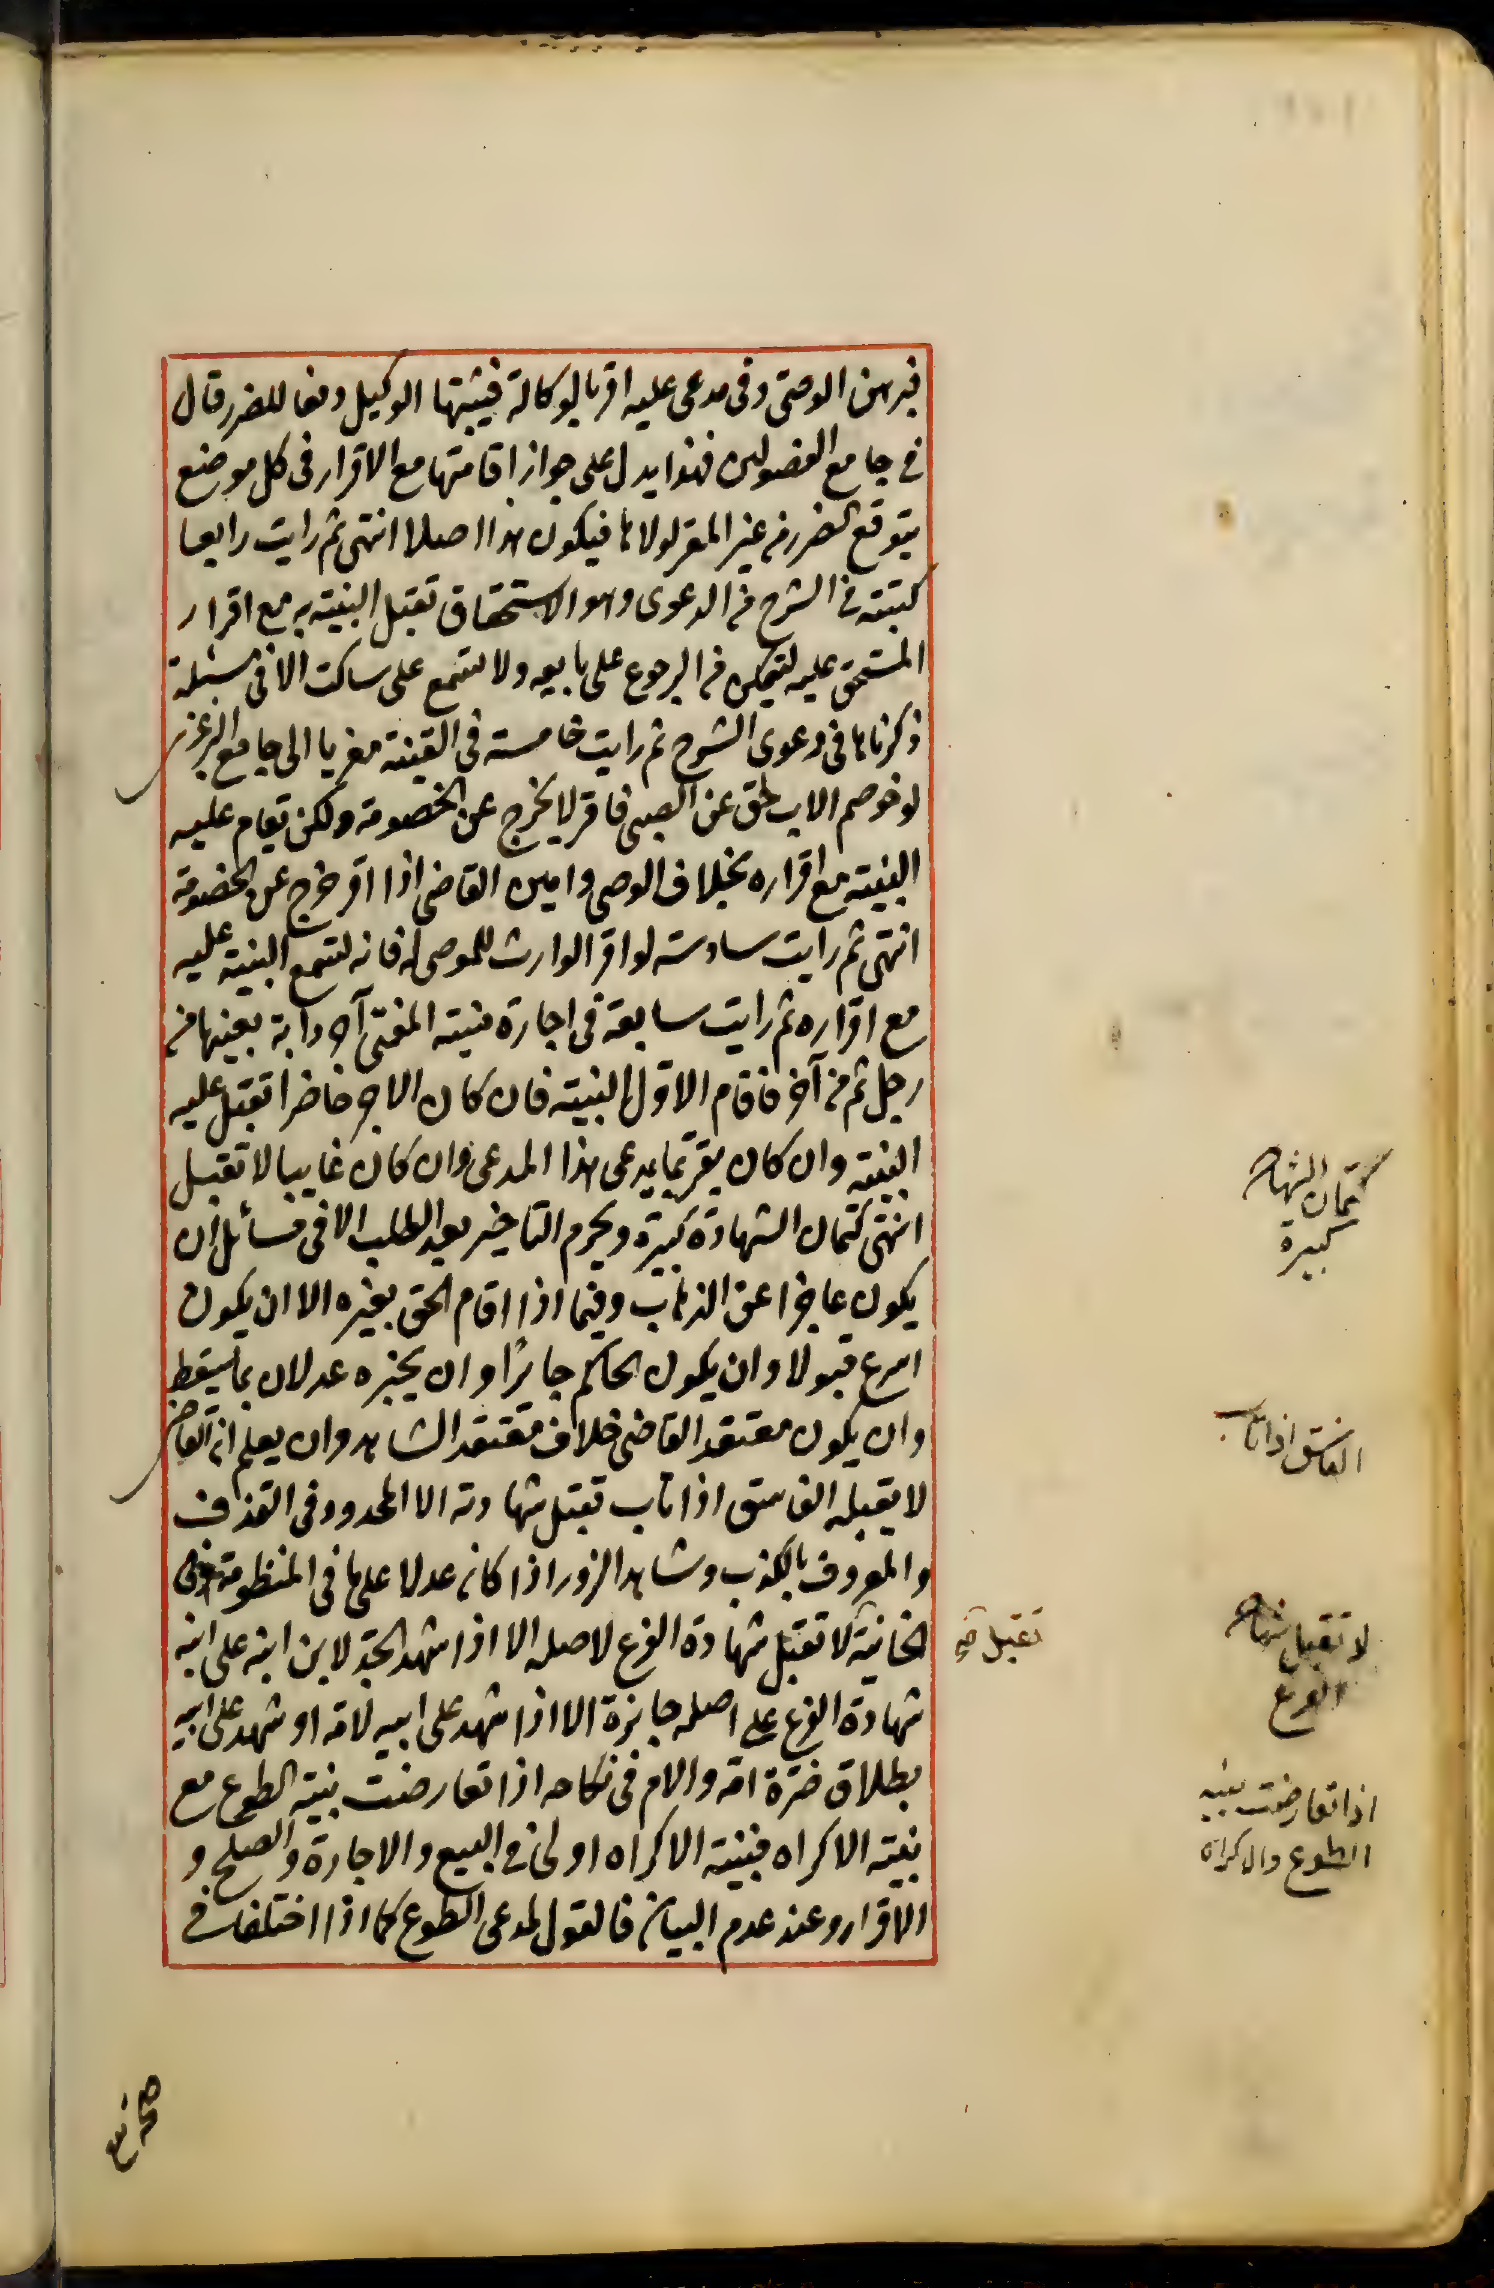 فبرهن الوصى وفى مدعى عليه اقر بالوكالة فيثبتها الوكيل دفعا للضرر قال
فى جامع الفصولين فهذا يدل على جواز اقامتها مع الاقرار فى كل موضع
يتوقع الضرر من غير المقر لولاها فيكون هذا اصلا انتهى ثم رايت رابعا
كتبته فى الشرح من الدعوى وهو الاستحقاق تقبل البينة به مع اقرار
المستحق عليه ليتمكن من الرجوع على بايعه ولا تسمع على ساكت الا فى مسئلة
ذكرناها فى دعوى الشرح ثم رايت خامسة فى القنية معزيا الى جامع البزغرى
لو خوصم الاب بحق عن الصبى فاقر لا يخرج عن الخصومة ولكن تقام عليه
البينة مع اقراره بخلاف الوصى وامين القاضى اذا اقر خرج عن الخصومة
انتهى ثم رايت سادسة لو اقر الوارث للموصى له فانه تسمع البينة عليه
مع اقراره ثم رايت سابعة فى اجارة منية المفتى آجر دابة بعينها من
رجل ثم من آخر فاقام الاول البينة فان كان الاجر حاضرا تقبل عليه
البينة وان كان يقر بما يدعى هذا المدعى وان كان غايبا لا تقبل
انتهى كتمان الشهادة كبيرة ويحرم التاخير بعد الطلب الا فى مسائل ان
يكون عاجزا عن الذهاب وفيما اذا اقام الحق بغيره الا ان يكون
اسرع قبولا وان يكون الحاكم جائرا وان يخبره عدلان بما يسقط
وان يكون معتقد القاضى خلاف معتقد الشاهد وان يعلم ان القاضى
لا يقبله الفاسق اذا تاب تقبل شهادته الا المحدود فى القذف
والمعروف بالكذب وشاهد الزور اذا كان عدلا على ما فى المنظومة وفى
الخانية لا تقبل شهادة الفرع لاصله الا اذا شهد الجد لابن ابنه على ابنه
شهادة الفرع على اصله جايزة الا اذا شهد على ابيه لامه او شهد على ابيه
بطلاق ضرة امه والام فى نكاحه اذا تعارضت بينة الطوع مع
بينة الاكراه فبينة الاكراه اولى فى البيع والاجارة والصلح و
الاقرار وعند عدم البيان فالقول لمدعى الطوع كما اذا اختلفا فى
كتمان الشهادة
كبيرة
الفاسق اذا تاب
تقبل صح
لا تقبل شهادة
الفرع
اذا تعارضت بينة
الطوع والاكراه
صحة بيع